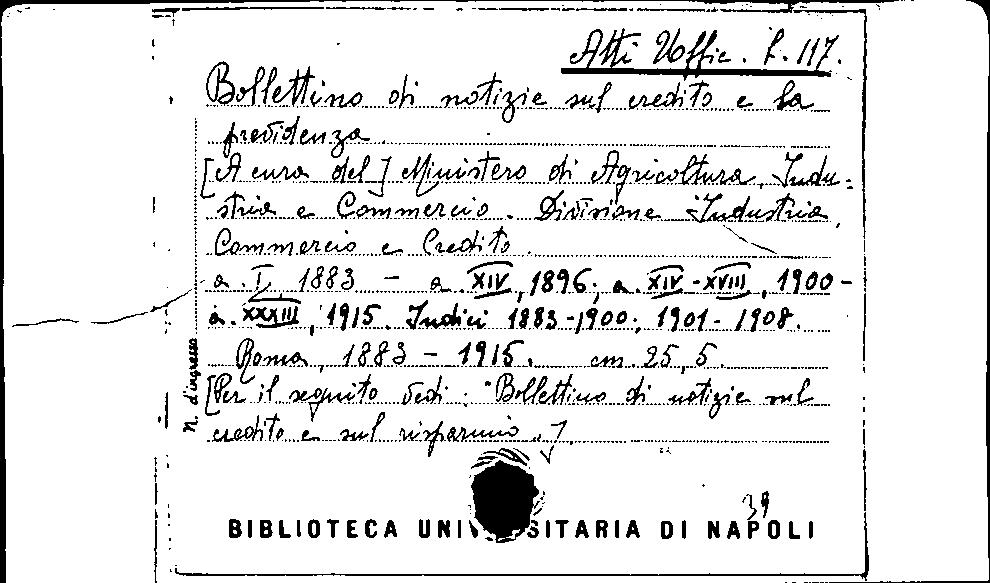 Atti Uffic. L. 117.
Bollettino di notizie sul credito e la
previdenza.
[A cura del] Ministero di Agricoltura, Indu=
stria e Commercio. Divisione Industria,
Commercio e Credito.
a. I, 1883 - a. XIV, 1896; a. XIV-XVIII, 1900-
a. XXXIII, 1915. Indici 1883-1900; 1901-1908.
Roma, 1883-1915. cm. 25,5.
[Per il seguito vedi: "Bollettino di notizie sul
credito e sul risparmio".]
N. d'ingresso
39
BIBLIOTECA UNIVERSITARIA DI NAPOLI